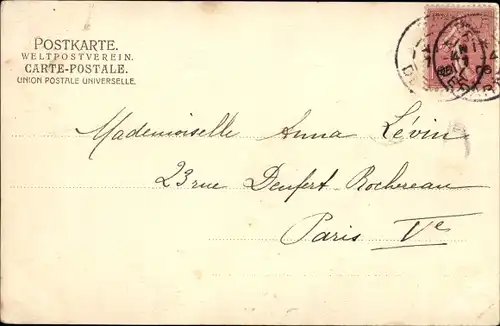 POSTKARTE.
WELTPOSTVEREIN.
CARTE-POSTALE.
UNION POSTALE UNIVERSELLE.
Mademoiselle Anna Lévin
23 rue Denfert Rochereau
Paris Ve